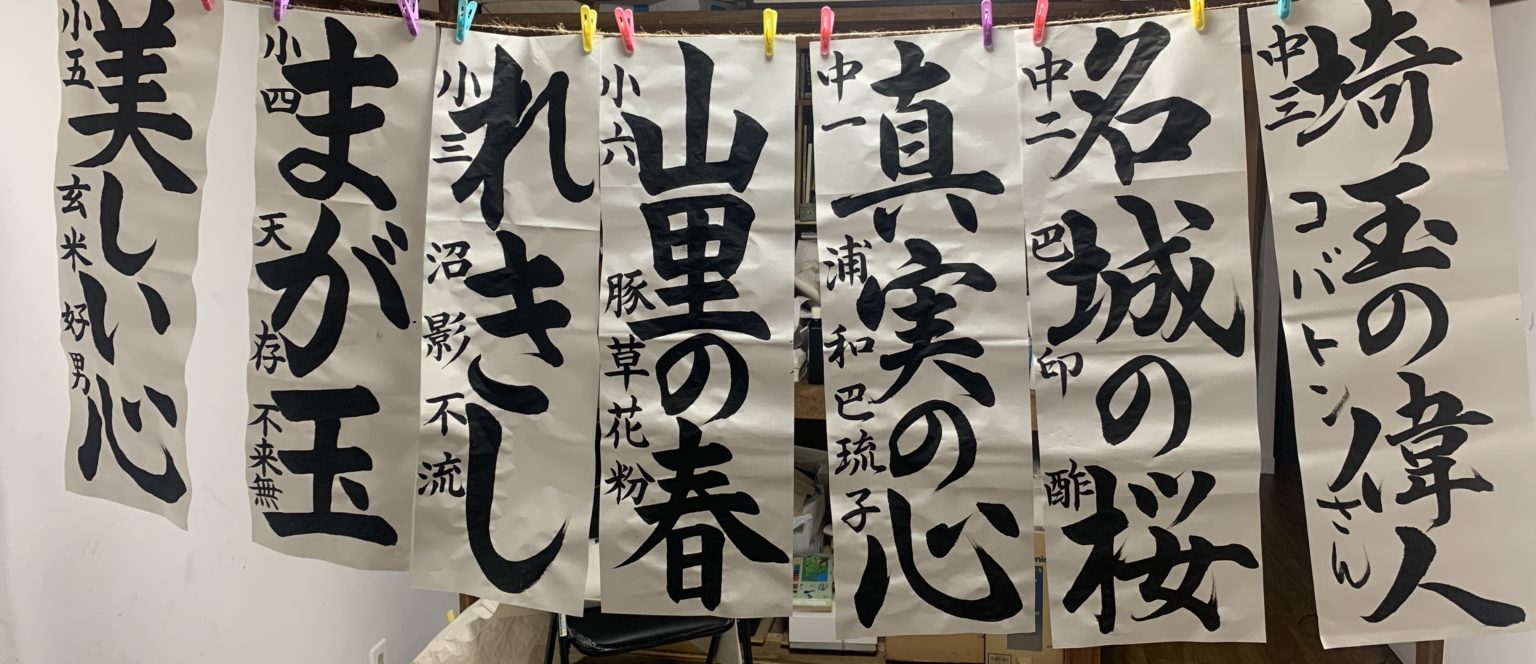 埼玉の偉人
中三 コバトンさん
名城の桜
中二 巴印酢
真実の心
中一 浦和巴琉子
山里の春
小六 豚草花粉
れきし
小三 沼影不流
まが玉
小四 天存不来無
美しい心
小五 玄米好男